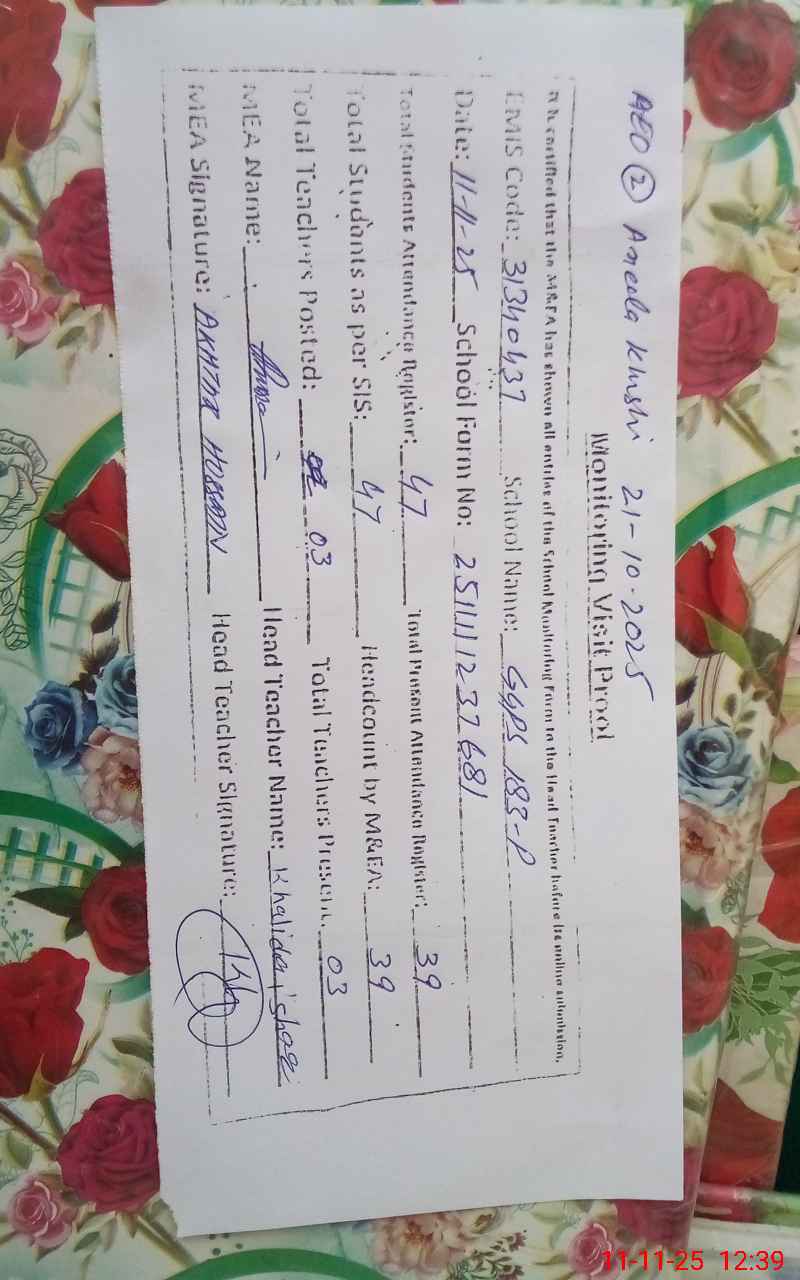 AEO ② Aneela Khushi 21-10-2025
Monitoring Visit Proof
It is certified that the M&EA has shown all entries of the School Monitoring Form to the Head Teacher before its online submission.
EMIS Code: 31340437 School Name: GGPS 183-P
Date: 11-11-25 School Form No: 251111237681
Total Students Attendance Register: 47 Total Present Attendance Register: 39
Total Students as per SIS: 47 Headcount by M&EA: 39
Total Teachers Posted: 03 Total Teachers Present: 03
MEA Name: Head Teacher Name: Khalida
MEA Signature: AKHTAR HUSSAIN Head Teacher Signature:
11-11-25 12:39